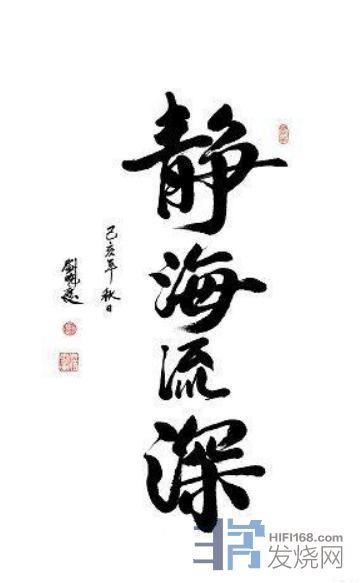 静海流深
己亥年秋日
HIFI168.com
发烧网